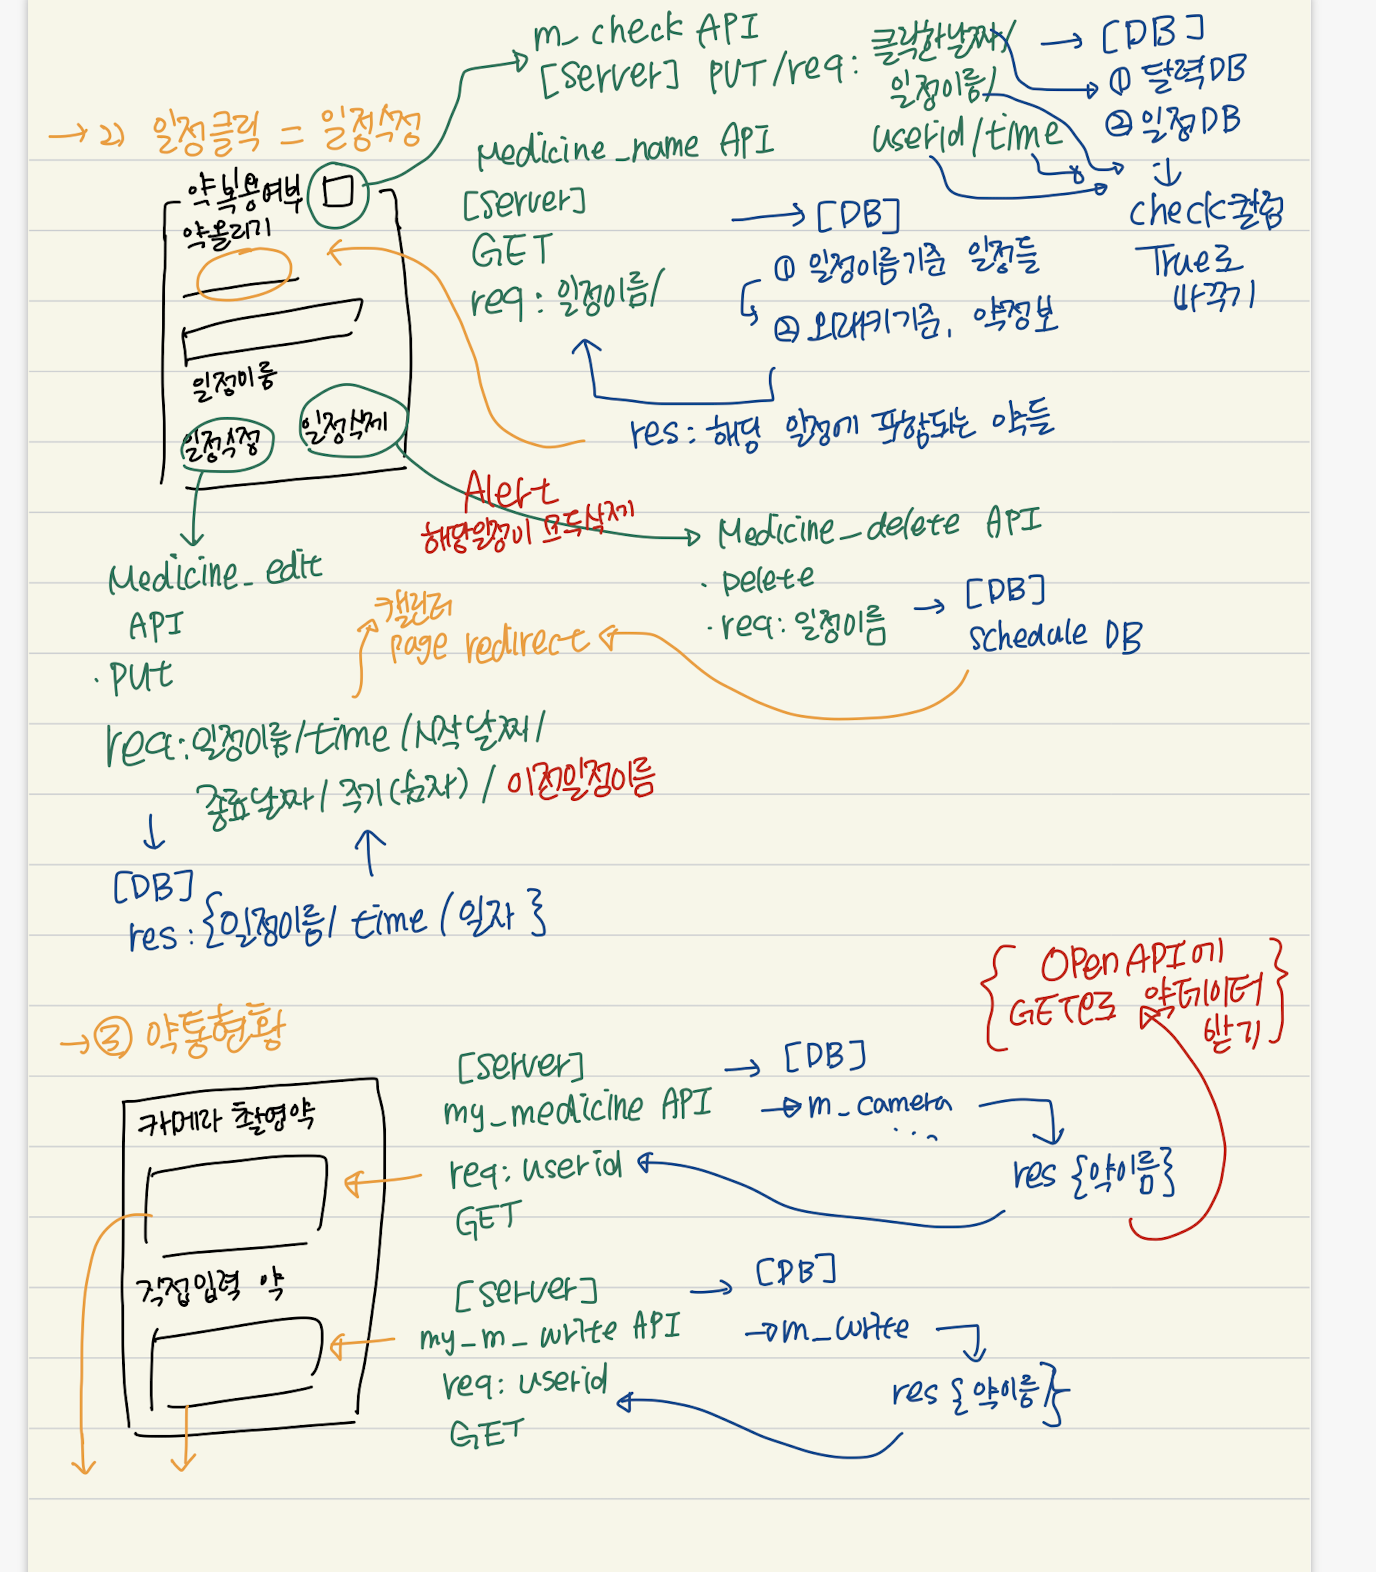 m_check API
[Server] PUT/req: 클릭한날짜/
일정이름/
userid/time
→ [DB]
① 달력DB
② 일정DB
↓
check칼럼
True로
바꾸기
→ 2) 일정클릭 = 일정수정
약복용여부
약올리기
일정이름
일정수정
일정삭제
Medicine_name API
[Server]
GET
req: 일정이름/
→ [DB]
① 일정이름기준 일정들
② 외래키기준, 약정보
res: 해당 일정에 포함되는 약들
Alert
해당일정이 모두삭제
Medicine_delete API
· Delete
· req: 일정이름
→ [DB]
schedule DB
캘린더
page redirect
Medicine_edit
API
· PUt
req: 일정이름/time/시작날짜/
종료날짜/주기(숫자)/이전일정이름
↓
[DB]
res: {일정이름/time/일자}
→ ③ 약통현황
카메라 촬영약
직접입력 약
[Server]
my_medicine API
req: userid
GET
→ [DB]
→ m_camera
...
res {약이름}
{OPen API에
GET으로 약데이터
받기}
[Server]
my_m_write API
req: userid
GET
→ [DB]
→ m_write
res {약이름}